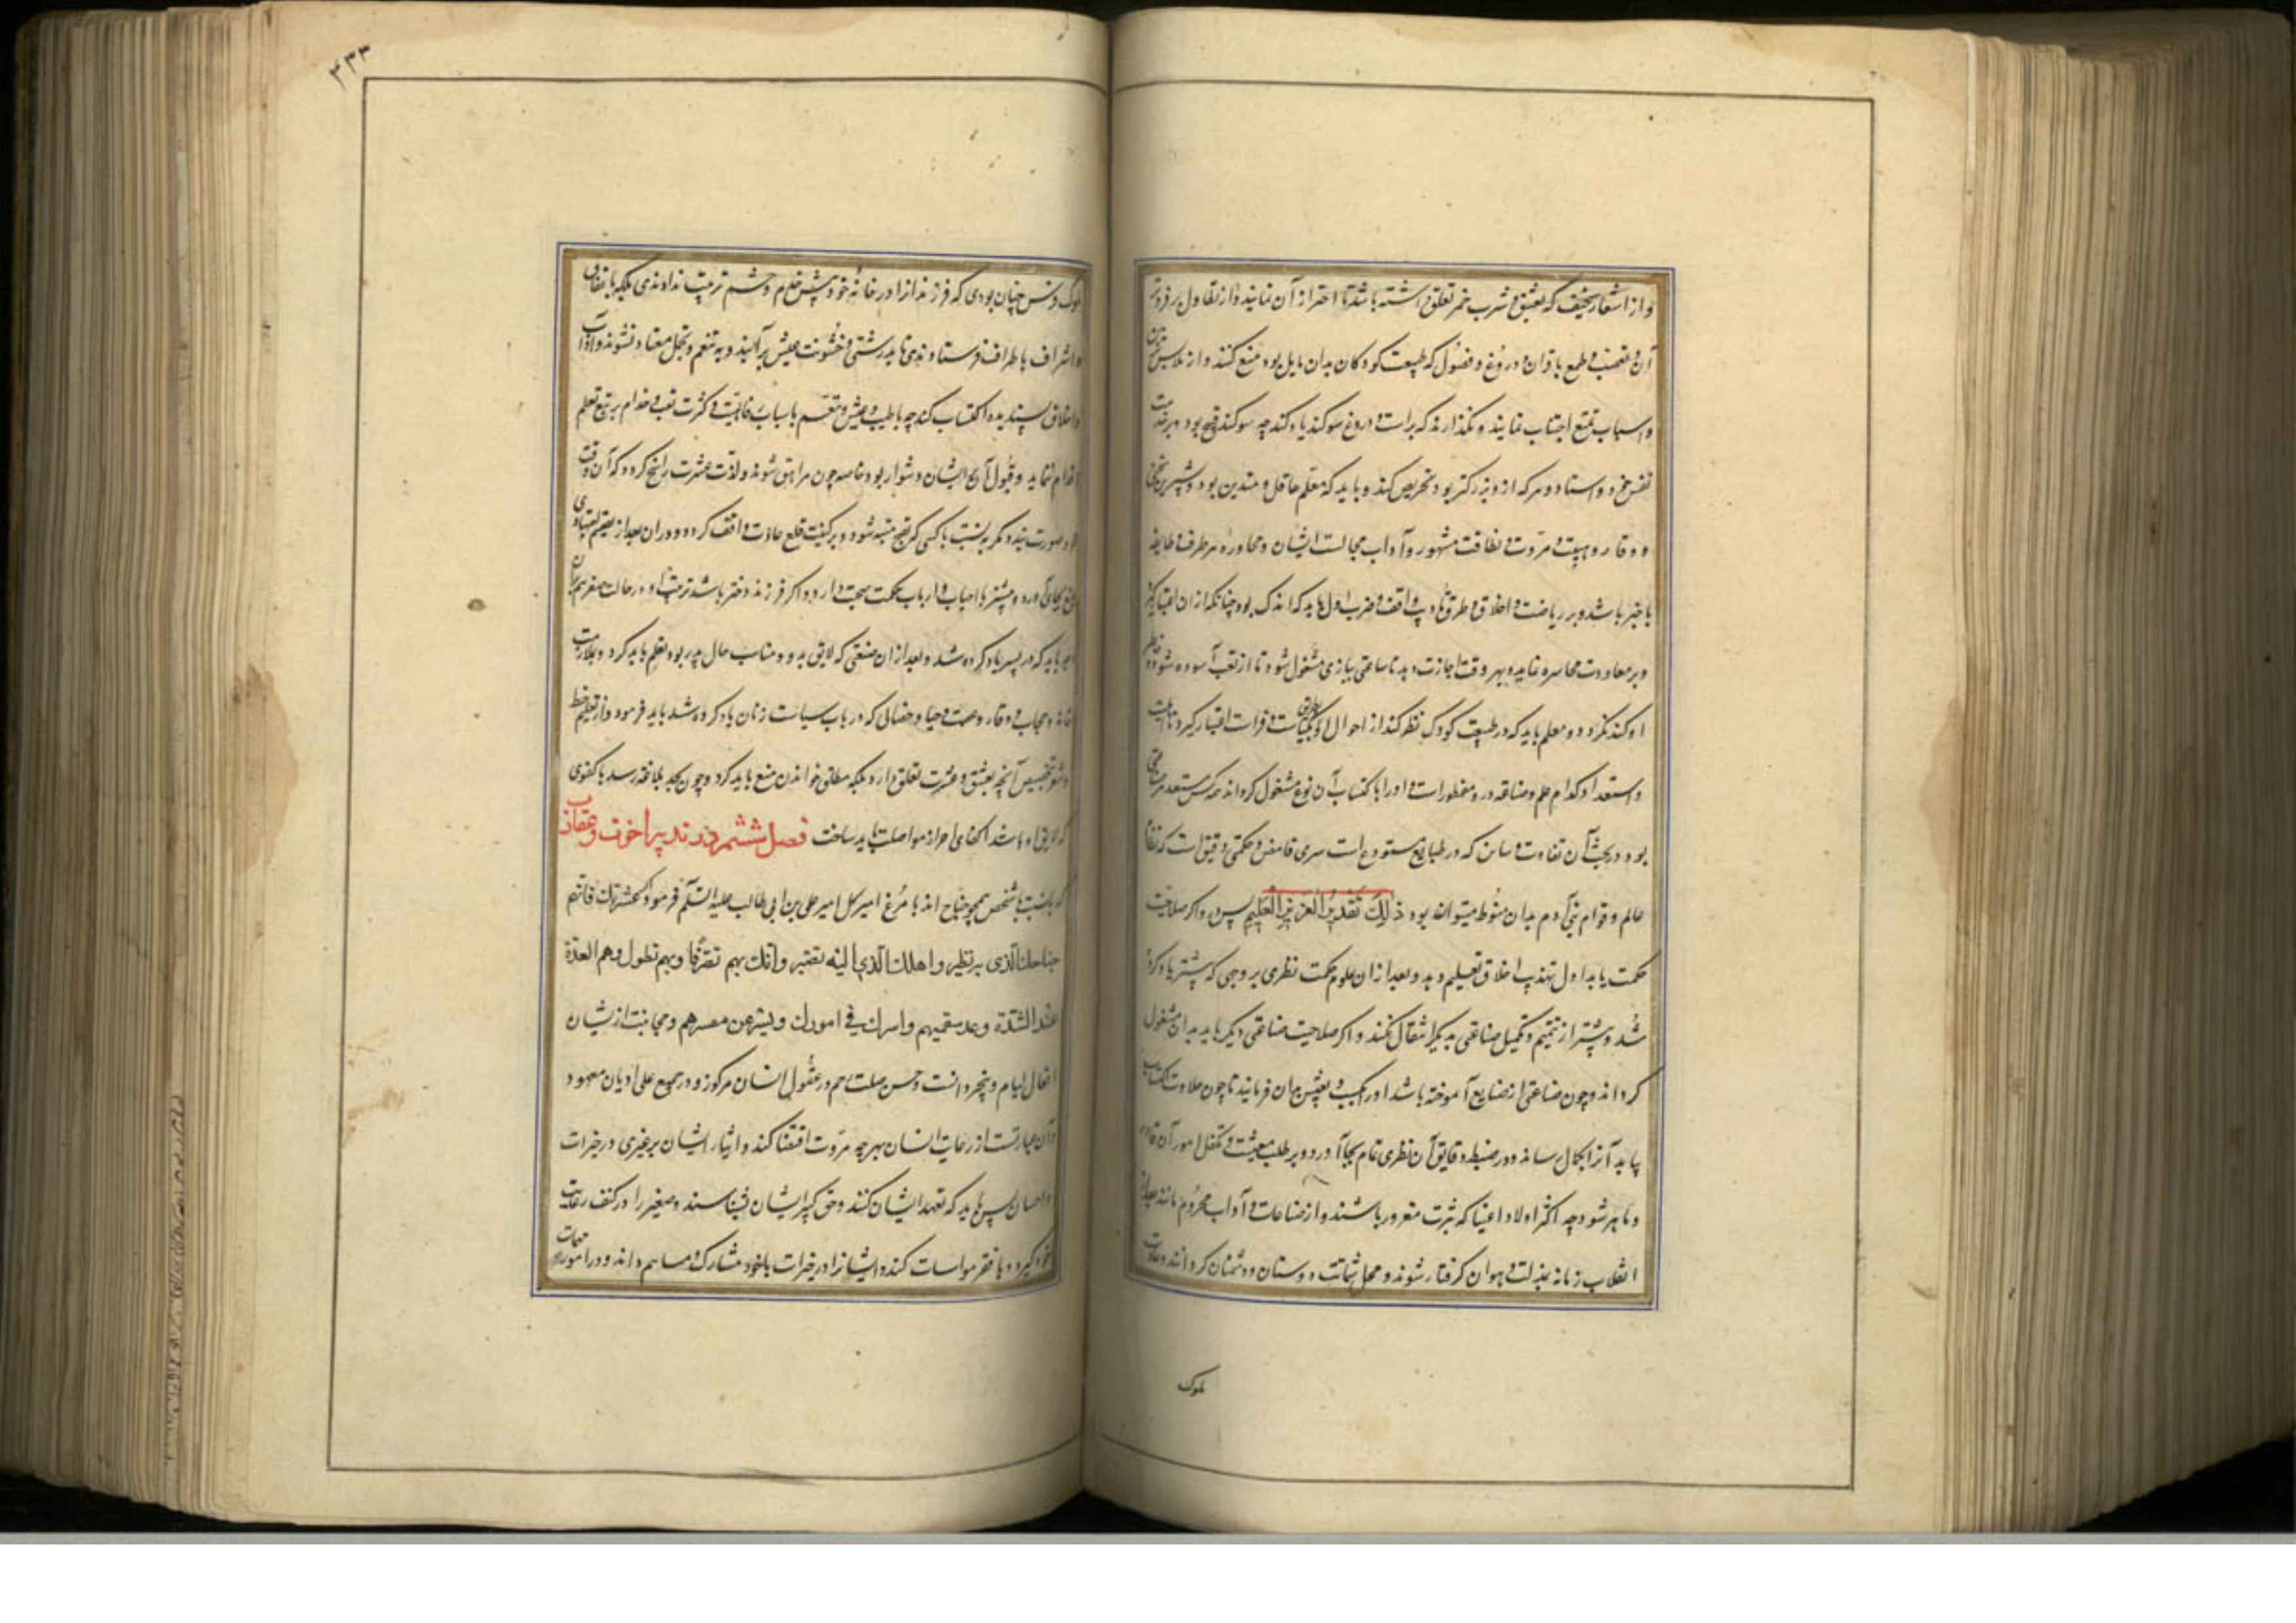 و از اشعار سخیف که بعشق و شرب خمر تعلق داشته باشد تا احتراز آن نمایند و از تطاول بر فروتر
آن و تعصب و طمع باقران و دروغ و فضول که طبیعت کودکان بدان مایل بود منع کنند و از ملابس
و اسباب تمتع اجتناب نمایند و نکذارند که براست و دروغ سوکند یاد کند چه سوکند قبیح بود
نفس خود و استاد و هر که ازو بزرکتر بود تحریص کند و باید که معلم عاقل و متدین بود و شیرین سخنی
و وقار و هیبت و مروت و نظافت مشهور و آداب مجالست ایشان و محاوره هر طرف و طایفه
با خبر باشد و بر ریاضت اخلاق و طرق تأدیب واقف و ضرب اول باید که اندک بود چنانکه از ان اعتبار کیرد
و بر معاودت نماید و بهر وقت اجازت دهد تا ساعتی ببازی مشغول شود تا از تعب آسوده شود و خاطر
او کند نکردد و معلم باید که در طبیعت کودک نظر کند از احوال او بکیاست و فراست اعتبار کیرد تا
و استعداد کدام علم و صناعه درو مفطورست و او را باکتساب آن نوع مشغول کرداند
بود و در تحت آن تفاوت که در طبایع مستودع است سری غامض و حکمتی دقیق است که نظام
عالم و قوام بنی آدم بدان منوط میتواند بود ذلک تقدیر العزیز العلیم پس و اکر صلاحیت
حکمت یابد اول تهذیب اخلاق تعلیم دهد و بعد از ان علوم حکمت نظری بر وجهی که پیشتر یاد کرده
شد و پیشتر از تتمیم و تکمیل صناعتی بدیکر انتقال نکند و اکر صلاحیت صناعتی دیکر یابد بدان مشغول
کرداند و چون صناعتی از صنایع آموخته باشد او را بکسب و تعیش بدان فرمایند تا چون حلاوت اکتساب
بیابد آنرا بکمال رساند و در ضبط دقایق آن نظری تمام بجا آورد و بر طلب معیشت و تکفل امور آن قادر
و ماهر شود چه اکثر اولاد اغنیا که بثروت مغرور باشند و از صناعات و آداب محروم مانند بعد از
انقلاب زمانه بمذلت و هوان کرفتار شوند و محل شماتت دوستان و دشمنان کردانند و عادت
ملوک
۴۳۳
ملوک فرس چنان بودی که فرزندانرا در خانه خود پیش خدم و حشم تربیت ندادندی بلکه با ثقات
و اشراف باطراف فرستادندی تا بدرشتی و خشونت عیش برآیند و به تنعم و تجمل معتاد نشوند و آداب
و اخلاق پسندیده اکتساب کند چه با طیب عیش و تنعم باسباب و کثرت خدام بر تبع تعلم
اقدام ننماید و قبول آن ایشان دشوار بود خاصه چون مراهق شوند و لذت عشرت راسخ کردد که آن وقت
صورت نبندد مکر بنسبت با کسی که بقبح متنبه شود و بر کیفیت قلع عادت واقف کرده
بجای آورد و بیشتر با احباب و ارباب حکمت صحبت دارد و اکر فرزند دختر باشد تربیت او در حالت صغر
باید که در پسر یاد کرده شد و بعد از ان صنعتی که لایق بدو و مناسب حال پدر بود تعلیم باید کرد و بملازمت
خانه و حجاب و وقار و عصمت و حیا و خصالی که در باب سیاست زنان یاد کرده شد باید فرمود و از تعلیم خط
و شعر بتخصیص آنچه بعشق و عشرت تعلق دارد بلکه مطلق خواندن منع باید کرد و چون بحد بلاغت رسد با کفوی
که لایق او باشد احراز مواصلت باید ساخت فصل ششم در تدبیر اخوف و عقارب
که بنسبت با شخص همچو جناح اند با مرغ امیر کل امیر علی بن ابی طالب علیه السلم فرمود اکرم عشیرتک فانهم
جناحک الذی به تطیر و اصلک الذی الیه تصیر وانک بهم تصرفا وبهم تطول وهم العدة
عند الشدة وعد سقیمهم واسرک فی امورک ویسر عن معسرهم و مجانبت از نشان
افعال لیام و بیخردانست و حسن صلت رحم در عقول انسان مرکوز و در جمیع علی ادیان معهود
و آن عبارتست از رعایت انسان بهر چه مروت اقتضا کند و ایثار ایشان بر غیری در خیرات
و احسان پس باید که تعهد ایشان کنند و حق کبیر ایشان بشناسند و صغیر را در کنف رعایت
خود کیرد و با فقر مواسات کند و ایشانرا در خیرات باخود مشارک و مساهم داند و در امور مهمات